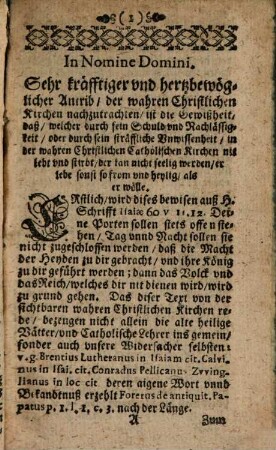 (1)
In Nomine Domini.
Sehr kräfftiger vnd hertzbewög-
licher Antrib / der wahren Christlichen
Kirchen nachzutrachten / ist die Gewißheit,
daß / welcher durch sein Schuld vnd Nachlässig-
keit / oder durch sein sträffliche Vnwissenheit / in
der wahren Christlichen Catholischen Kirchen nit
lebt vnd stirbt, der kan nicht seelig werden / er
lebe sonst so from vnd heylig, als
er wölle.
ERstlich / wird dises bewisen auß H.
Schrifft Isaiæ 60 v 11.12. Dei-
ne Porten sollen stets offen ste-
hen / Tag vnnd Nacht sollen sie
nicht zugeschlossen werden / daß die Macht
der Heyden zu dir gebracht / vnd ihre König
zu dir geführt werden; dann das Volck vnd
das Reich / welches dir nit dienen wird / wird
zu grund gehen. Das diser Text von der
sichtbaren wahren Christlichen Kirchen re-
de / bezeugen nicht allein die alte heilige
Vätter / vnd Catholische Lehrer ins gemein /
sonder auch vnsere Widersacher selbsten:
v. g. Brentius Lutheranus in Isaiam cit. Calvi-
nus in Isai. cit. Conradus Pellicanus Zvving-
lianus in loc cit deren aigene Wort vnnd
Bekandtnuß erzehlt Forerus de antiquit. Pa-
patus p. 1. l. 1, c, 3. nach der Länge.
A Zum